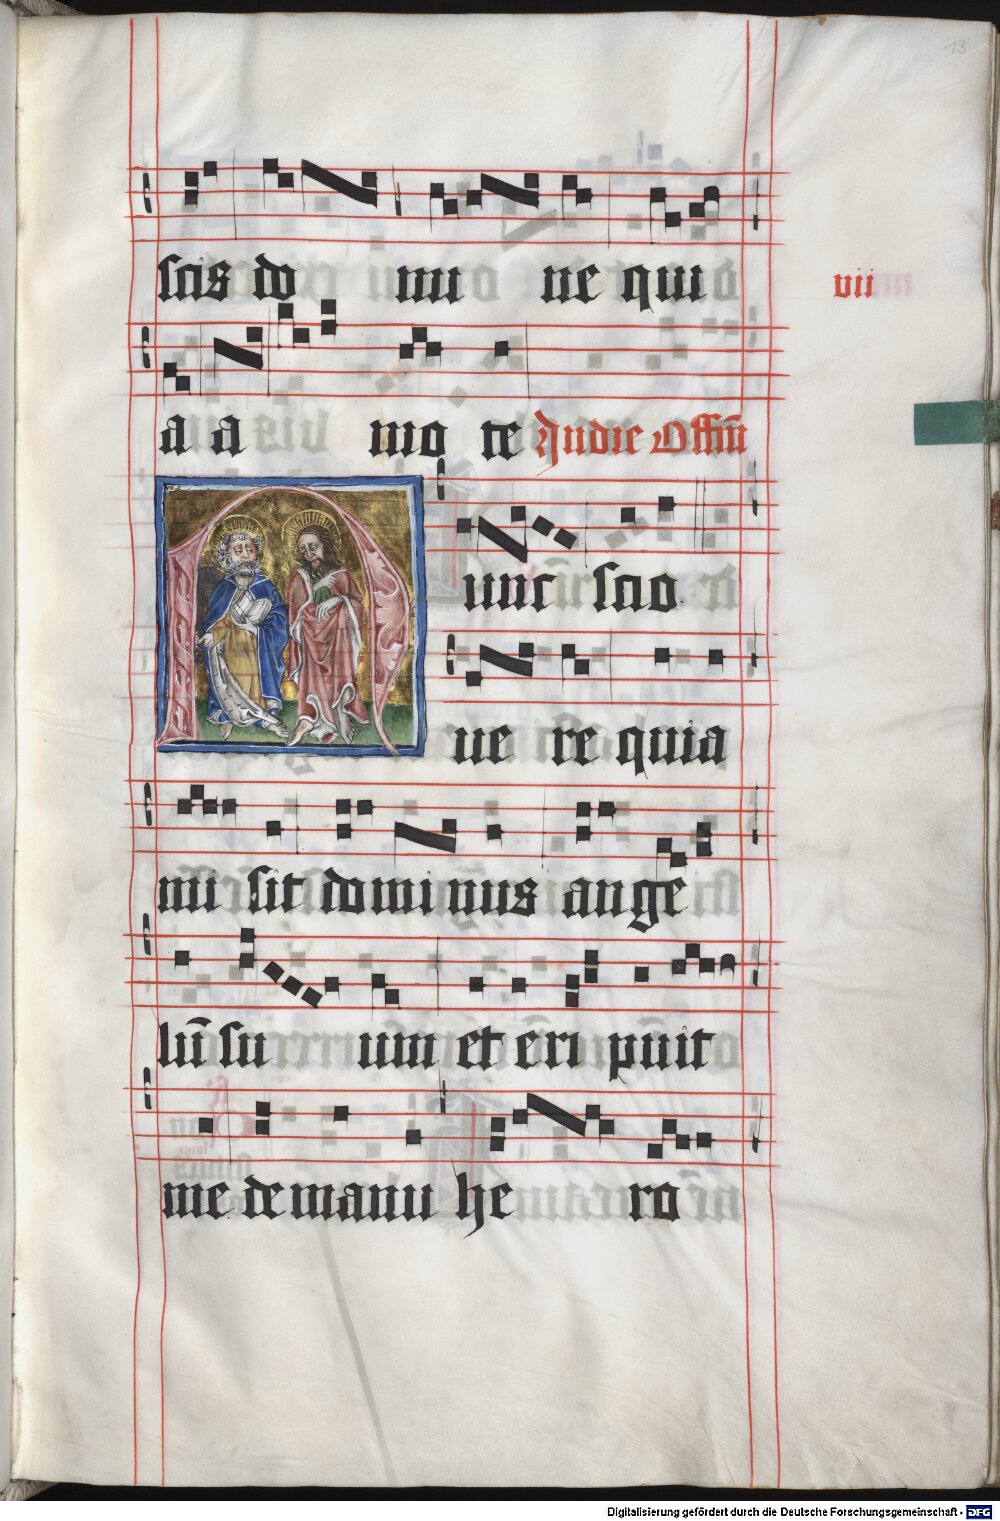 13
scis do mi ne qui
vii
a a mo te In die Offm̄
unc scio
ve re quia
mi sit dominus ange
lū su um et eri puit
me de manu he ro
Digitalisierung gefördert durch die Deutsche Forschungsgemeinschaft - DFG